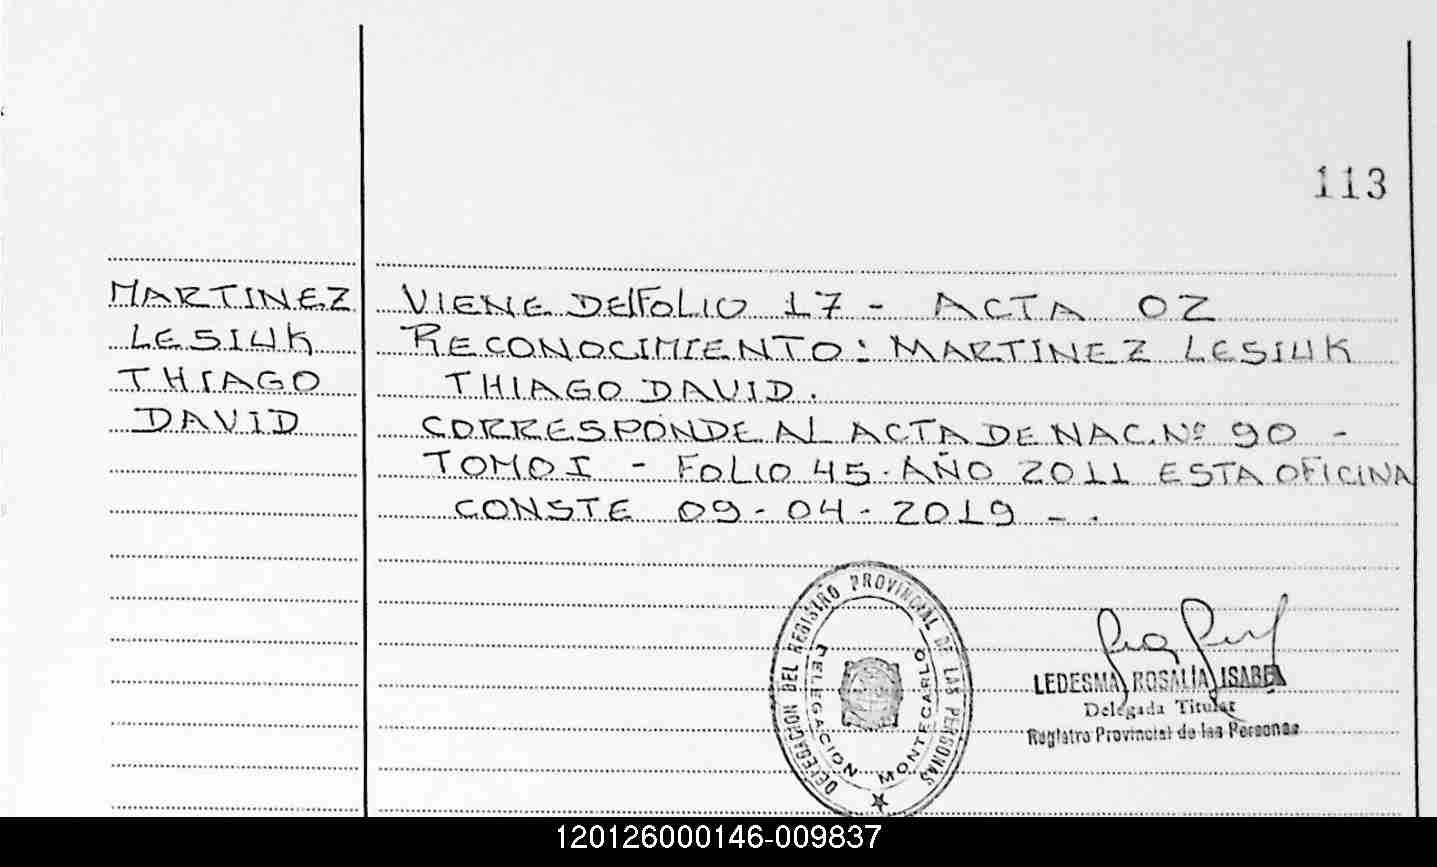 113
MARTINEZ
LESIUK
THIAGO
DAVID
VIENE DEL FOLIO 17 - ACTA 02
RECONOCIMIENTO: MARTINEZ LESIUK
THIAGO DAVID.
CORRESPONDE AL ACTA DE NAC. Nº 90 -
TOMO I - FOLIO 45. AÑO 2011 ESTA OFICINA
CONSTE 09-04-2019 - .
DELEGACION DEL REGISTRO PROVINCIAL DE LAS PERSONAS
DELEGACION MONTECARLO
LEDESMA ROSALIA ISABEL
Delegada Titular
Registro Provincial de las Personas
120126000146-009837